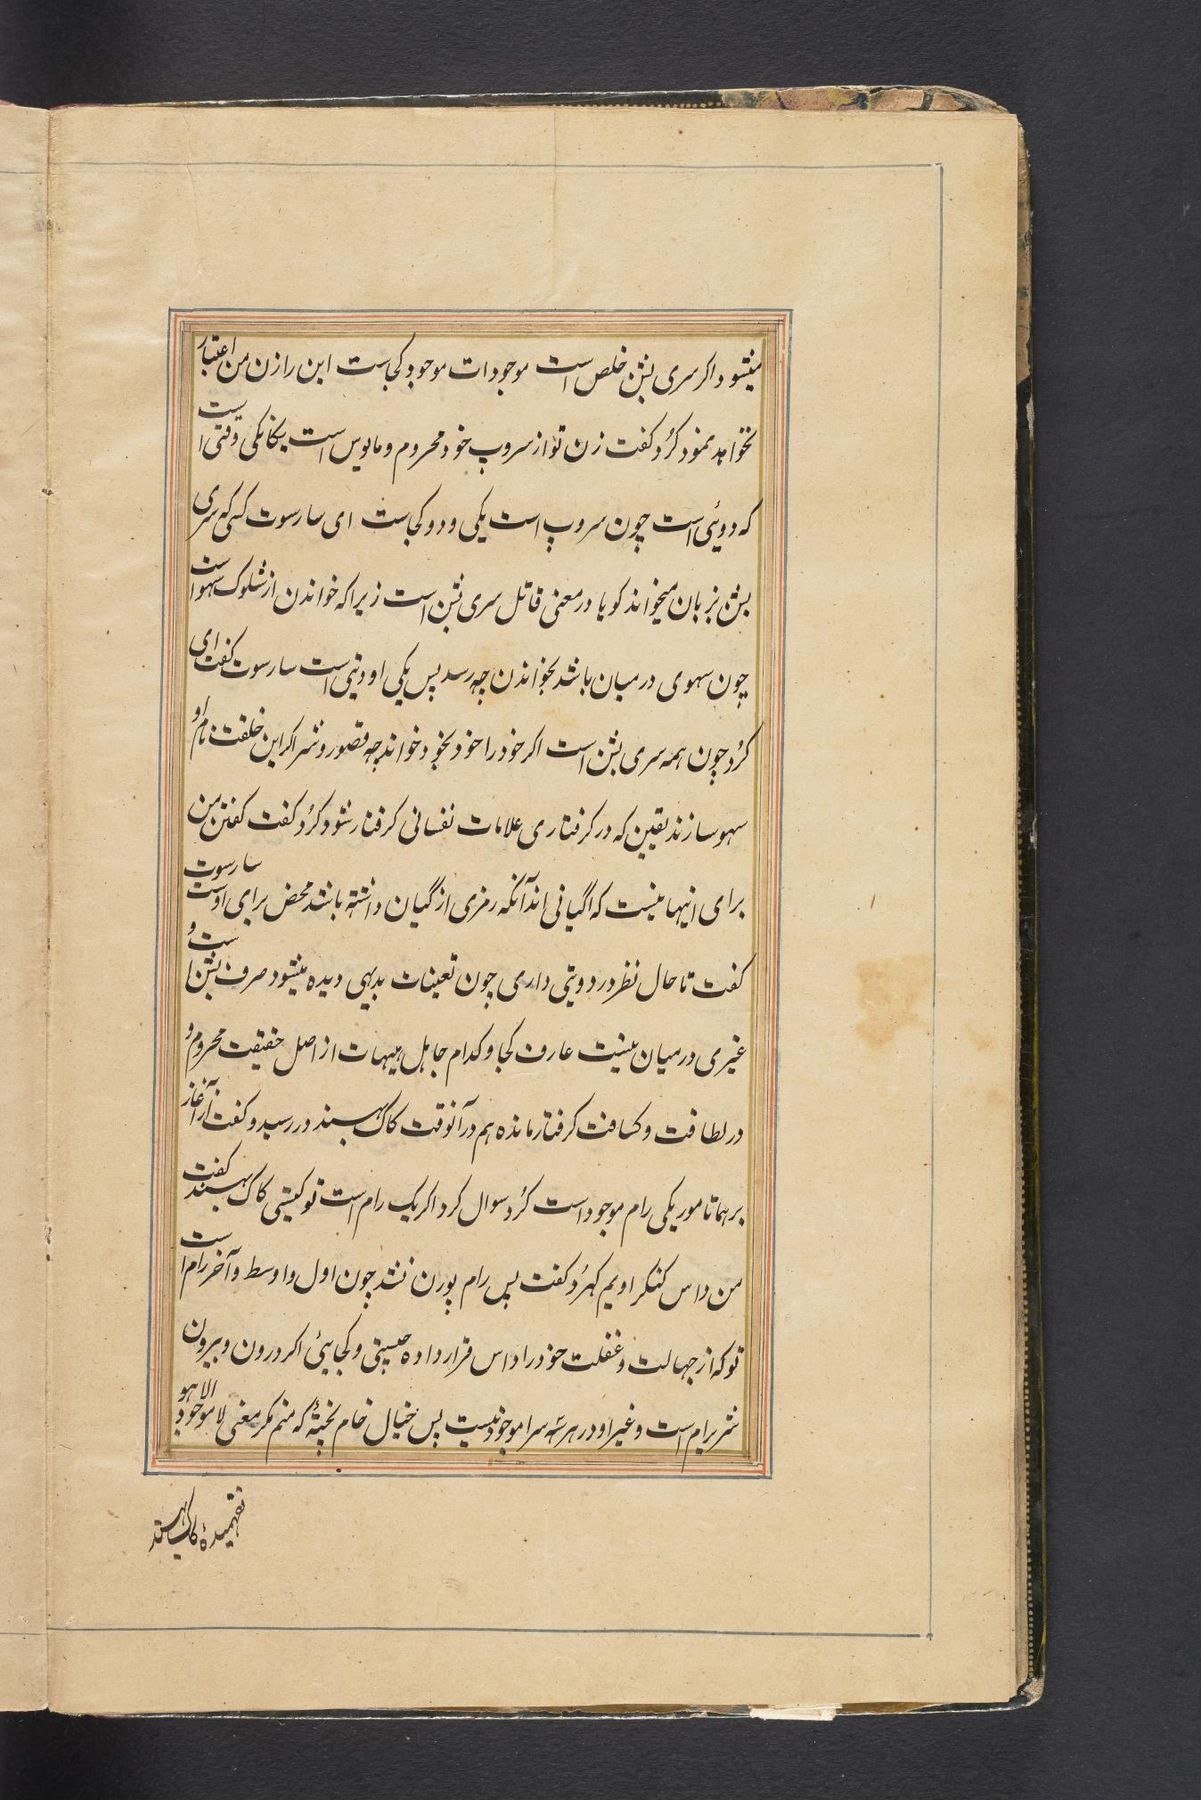 میشود اگر سری بشن خلص است موجودات موجود کجاست این را زن من اعتبار
نخواهد نمود کرُد گفت زن تو از سروپ خود محروم و مایوس است یگانگی وقتی است
که دوئی است چون سروپ است یکی و دو کجاست ای سارسوت کسی که سری
بشن بزبان میخواند گویا در معنی قاتل سری بشن است زیرا که خواندن از شلوک سهو است
چون سهوی در میان باشد بخواندن چه رسد پس یکی او دئی است سارسوت گفت ای
کرُد چون همه سری بشن است اگر خود را خود بخود خواند چه قصور و شر اگر این خلقت نام او
سهو سازند یقین که در گرفتاری علامات نفسانی گرفتار شود کرُد گفت گفتن من
برای اینها نیست که اگیانی اند آنکه رمزی از گیان داشته باشد محض برای اوست سارسوت
گفت تا حال نظر در دویتی داری چون تعینات بدیهی دیده میشود صرف بشن است و
غیری در میان نیست عارف کجا و کدام جاهل هیهات از اصل حقیقت محروم و
در لطافت و کسافت گرفتار مانده هم در آنوقت کاک بهسند در رسید و گفت از آغاز
برهما تا مور یکی رام موجود است کرُد سوال کرد اگر یک رام است تو کیستی کاک بهسند گفت
من داس کنکر اویم کرُد گفت پس رام پورن نشد چون اول و اوسط و آخر رام است
تو که از جهالت و غفلت خود را داس قرار داده چیستی و کجایی اگر درون و بیرون
سربرام است و غیر او در هر شه سرا موجود نیست پس خیال خام پختهٔ که منم مگر معنی لا موجود الا هو
نفهمیدهٔ کاک بهسند